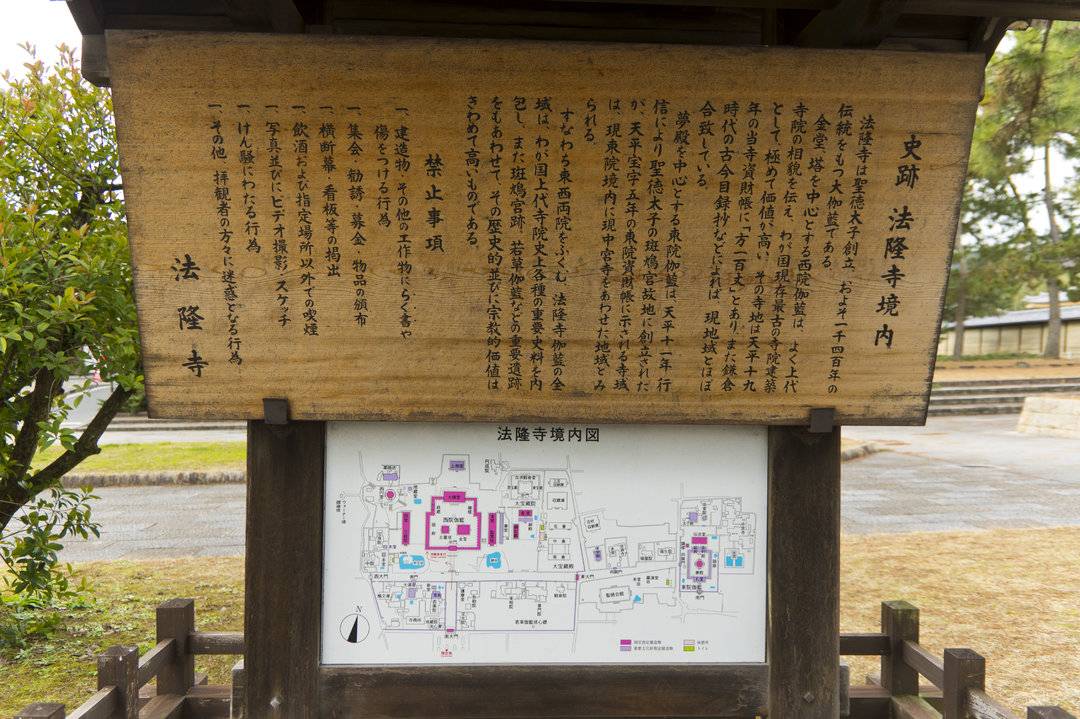 史跡 法隆寺境内
法隆寺は聖徳太子創立、およそ一千四百年の
伝統をもつ大伽藍である。
金堂、塔を中心とする西院伽藍は、よく上代
寺院の相貌を伝え、わが国現存最古の寺院建築
として、極めて価値が高い。その寺地は天平十九
年の当寺資財帳に「方一百丈」とあり、また鎌倉
時代の古今目録抄などによれば、現地域とほぼ
合致している。
夢殿を中心とする東院伽藍は、天平十一年行
信により聖徳太子の斑鳩宮故地に創立された
が、天平宝字五年の東院資財帳に示される寺域
は、現東院境内に現中宮寺をあわせた地域とみ
られる。
すなわち東西両院をふくむ、法隆寺伽藍の全
域は、わが国上代寺院史上各種の重要史料を内
包し、また斑鳩宮跡、若草伽藍などの重要遺跡
をもあわせて、その歴史的並びに宗教的価値は
きわめて高いものである。
禁止事項
一、建造物、その他の工作物にらく書や
傷をつける行為
一、集会・勧誘・募金、物品の頒布
一、横断幕・看板等の掲出
一、飲酒および指定場所以外での喫煙
一、写真並びにビデオ撮影、スケッチ
一、けん騒にわたる行為
一、その他、拝観者の方々に迷惑となる行為。
法隆寺
法隆寺境内図
大宝蔵院
西院伽藍
大宝蔵殿
西大門
東大門
東院伽藍
聖徳会館
若草伽藍塔心礎
南大門
N